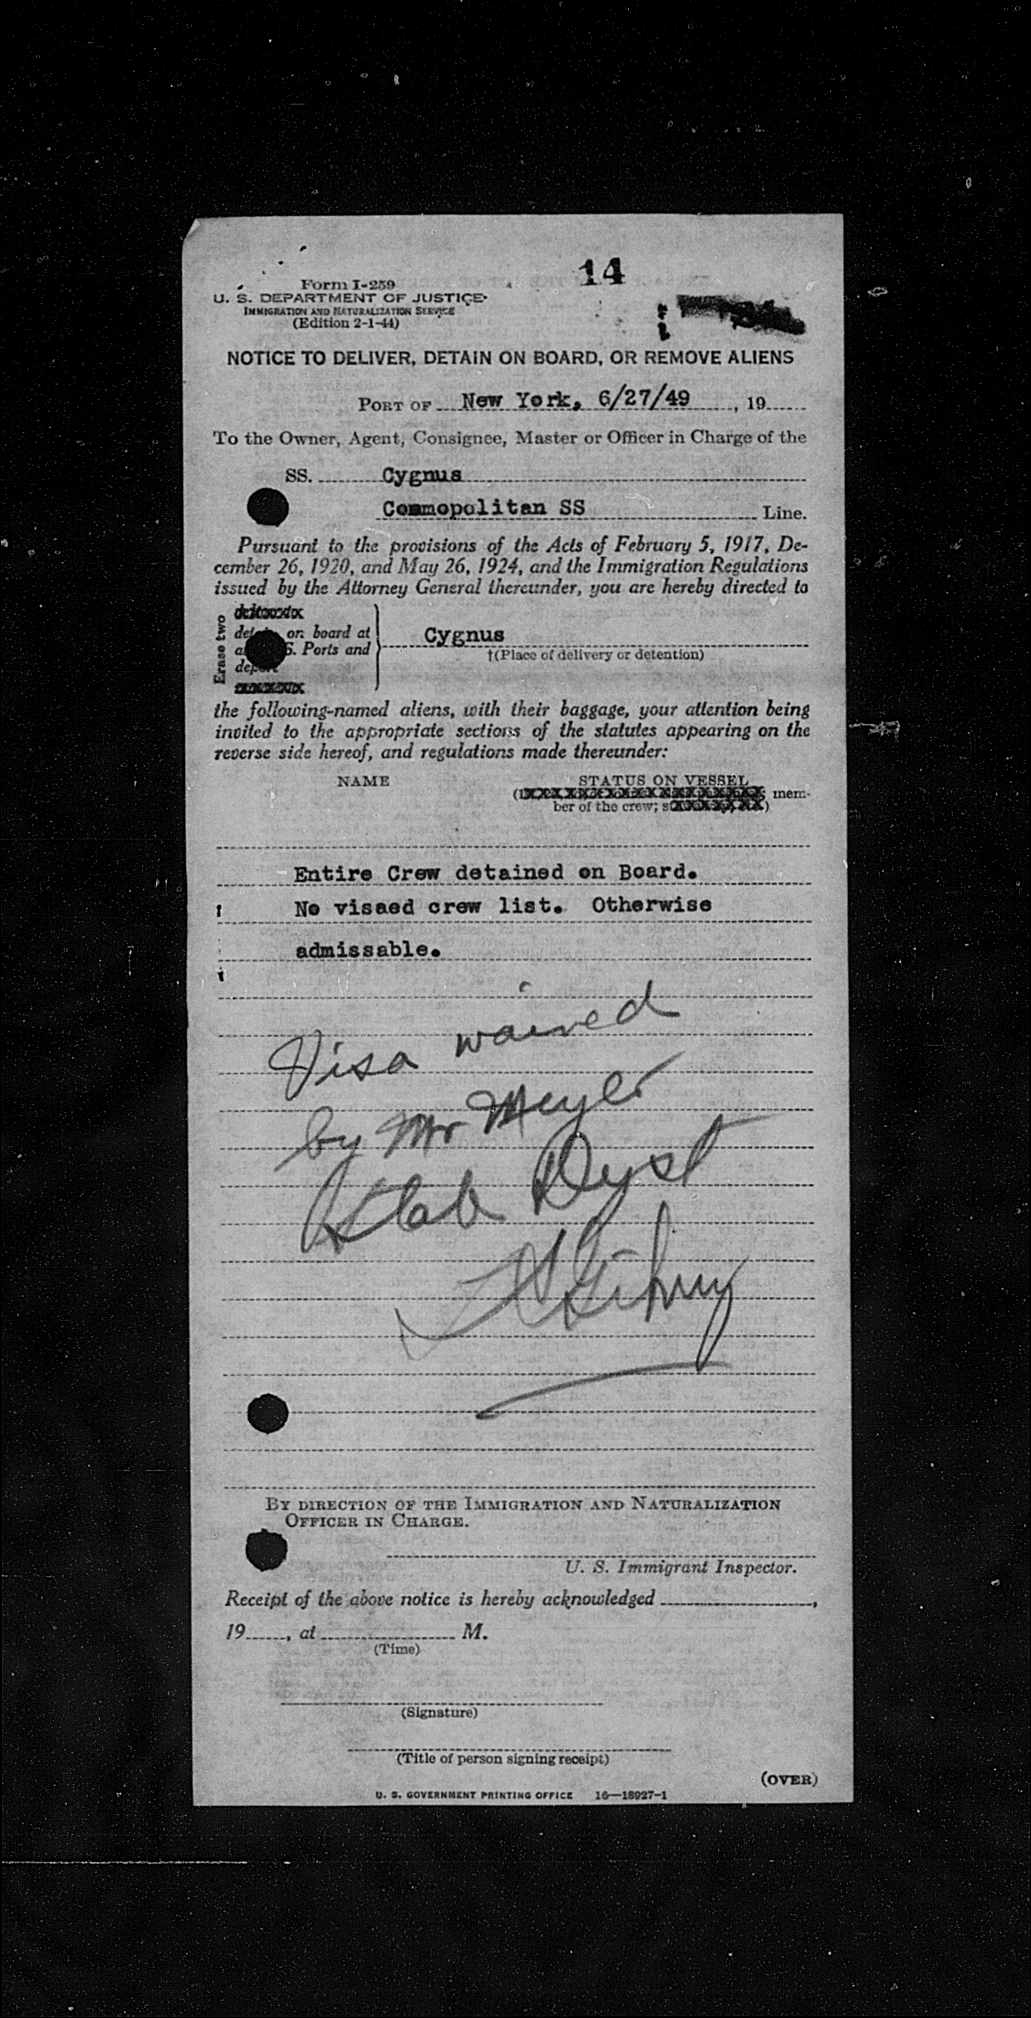 14
Form I-259
U. S. DEPARTMENT OF JUSTICE
IMMIGRATION AND NATURALIZATION SERVICE
(Edition 2-1-44)
NOTICE TO DELIVER, DETAIN ON BOARD, OR REMOVE ALIENS
PORT OF New York, 6/27/49, 19
To the Owner, Agent, Consignee, Master or Officer in Charge of the
SS. Cygnus
Cosmopolitan SS Line.
Pursuant to the provisions of the Acts of February 5, 1917, De-
cember 26, 1920, and May 26, 1924, and the Immigration Regulations
issued by the Attorney General thereunder, you are hereby directed to
Erase two
on board at
Ports and
Cygnus
†(Place of delivery or detention)
the following-named aliens, with their baggage, your attention being
invited to the appropriate sections of the statutes appearing on the
reverse side hereof, and regulations made thereunder:
NAME STATUS ON VESSEL
mem-
ber of the crew;
Entire Crew detained on Board.
No visaed crew list. Otherwise
admissable.
Visa waived
by Mr Meyer
BY DIRECTION OF THE IMMIGRATION AND NATURALIZATION
OFFICER IN CHARGE.
U. S. Immigrant Inspector.
Receipt of the above notice is hereby acknowledged ,
19 , at M.
(Time)
(Signature)
(Title of person signing receipt)
(OVER)
U. S. GOVERNMENT PRINTING OFFICE 16—18927-1